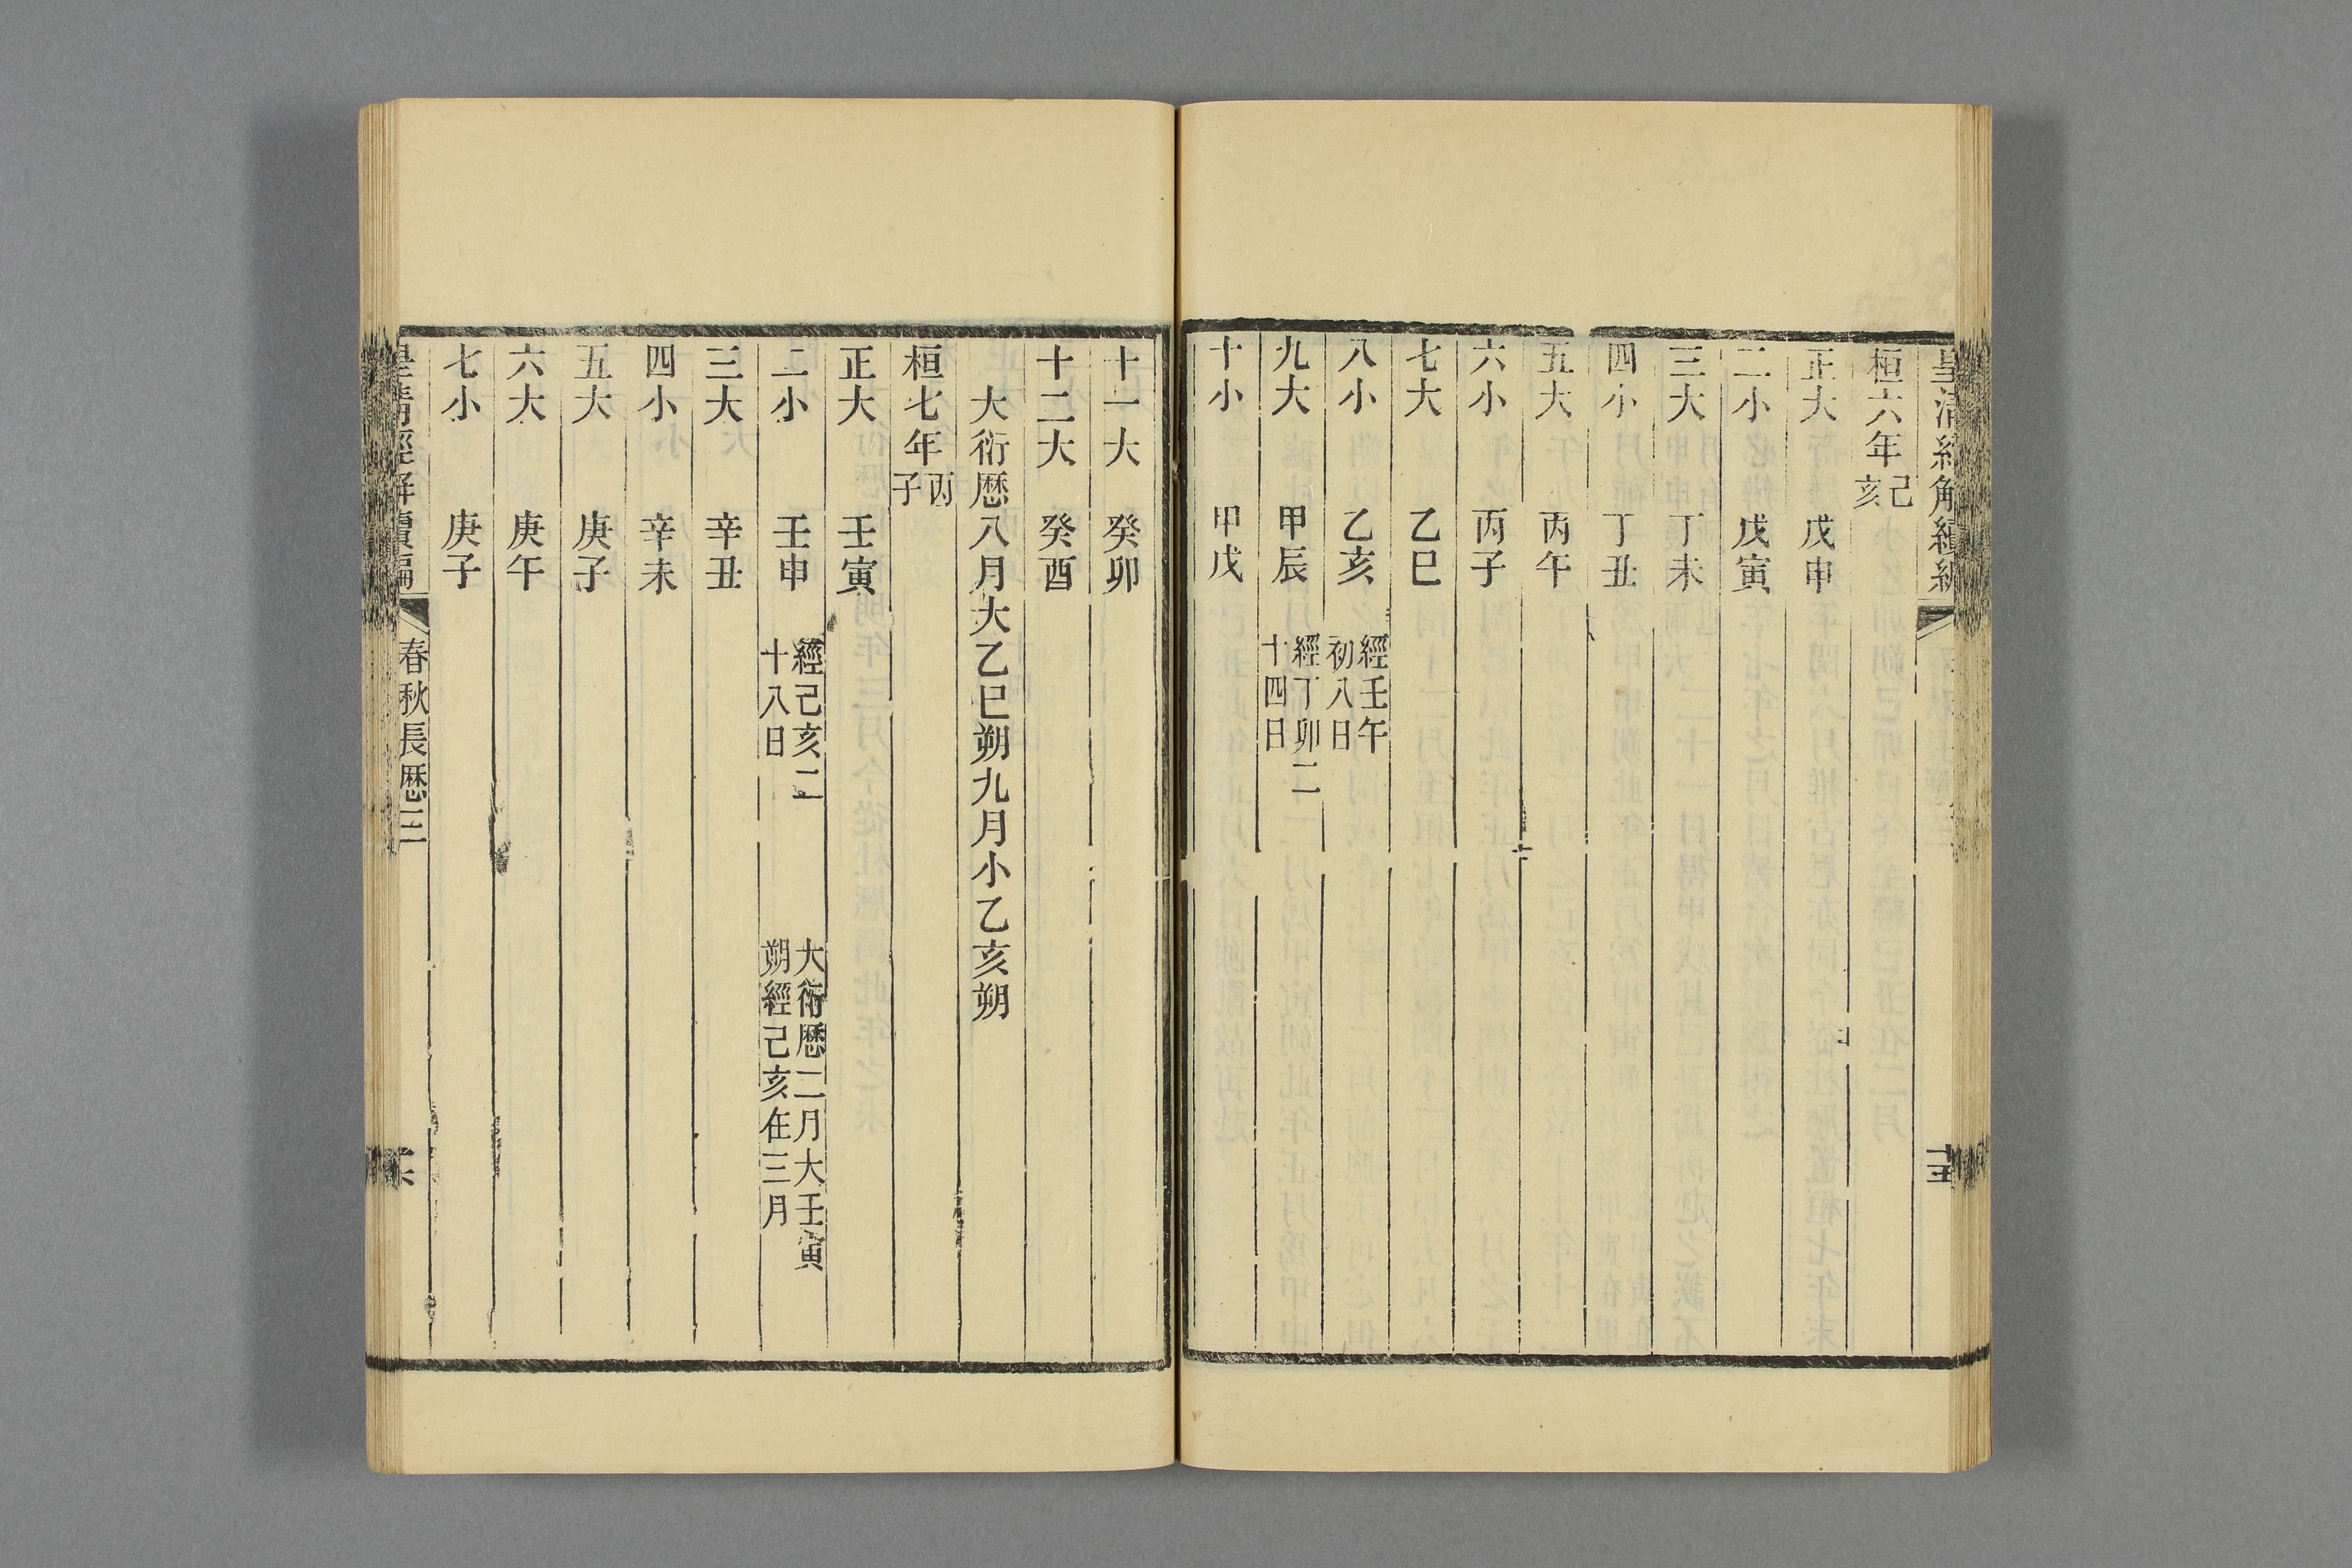 桓六年己亥
正大 戊申
二小 戊寅
三大 丁未
四小 丁丑
五大 丙午
六小 丙子
七大 乙巳
八小 乙亥 經壬午初八日
九大 甲辰 經丁卯二十四日
十小 甲戌
十一大 癸卯
十二大 癸酉
大衍厯八月大乙巳朔九月小乙亥朔
桓七年丙子
正大 壬寅
二小 壬申 經己亥二十八日 大衍厯二月大壬寅朔經己亥在三月
三大 辛丑
四小 辛未
五大 庚子
六大 庚午
七小 庚子
春秋長厯三